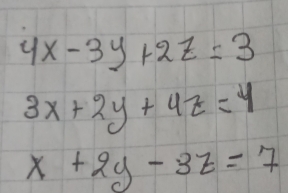 4x - 3y + 2z = 3
3x + 2y + 4z = 4
x + 2y - 3z = 7